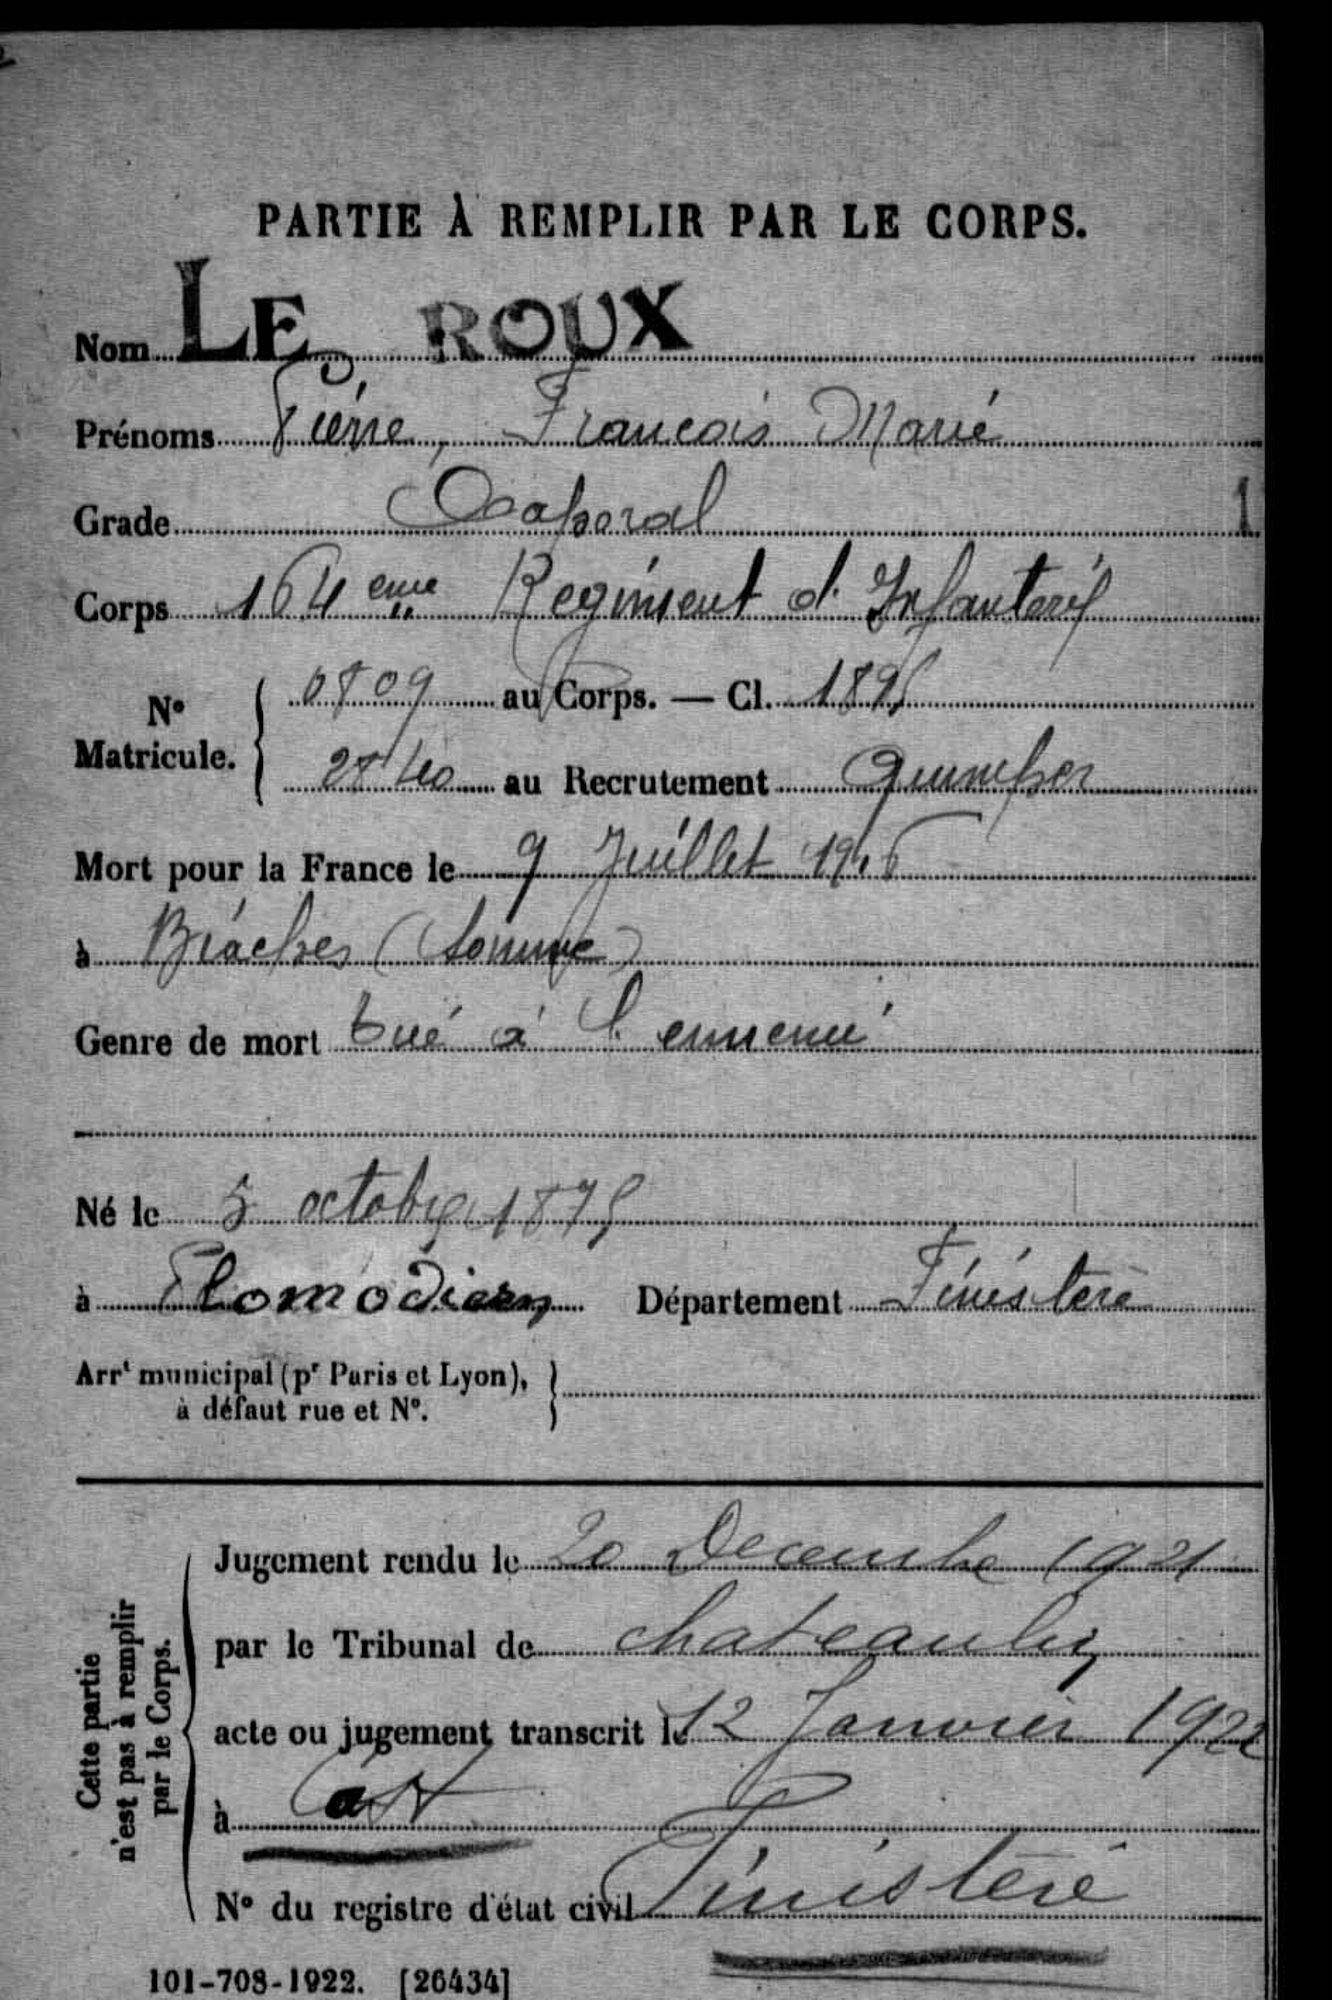 PARTIE À REMPLIR PAR LE CORPS.
Nom LE ROUX
Prénoms Pierre, François Marie
Grade Caporal
1
Corps 164 eme Regiment d'Infanterie
N° Matricule. 0809 au Corps. — Cl. 1895
2840 au Recrutement Quimper
Mort pour la France le 9 Juillet 1916
à Biaches (Somme)
Genre de mort tué à l'ennemi
Né le 5 octobre 1875
à Plomodiern Département Finistère
Arrt municipal (pr Paris et Lyon),
à défaut rue et N°.
Cette partie
n'est pas à remplir
par le Corps.
Jugement rendu le 20 Decembre 1921
par le Tribunal de chateaulin
acte ou jugement transcrit le 12 Janvier 1922
à Cast
N° du registre d'état civil Finistère
101-708-1922. [26434]